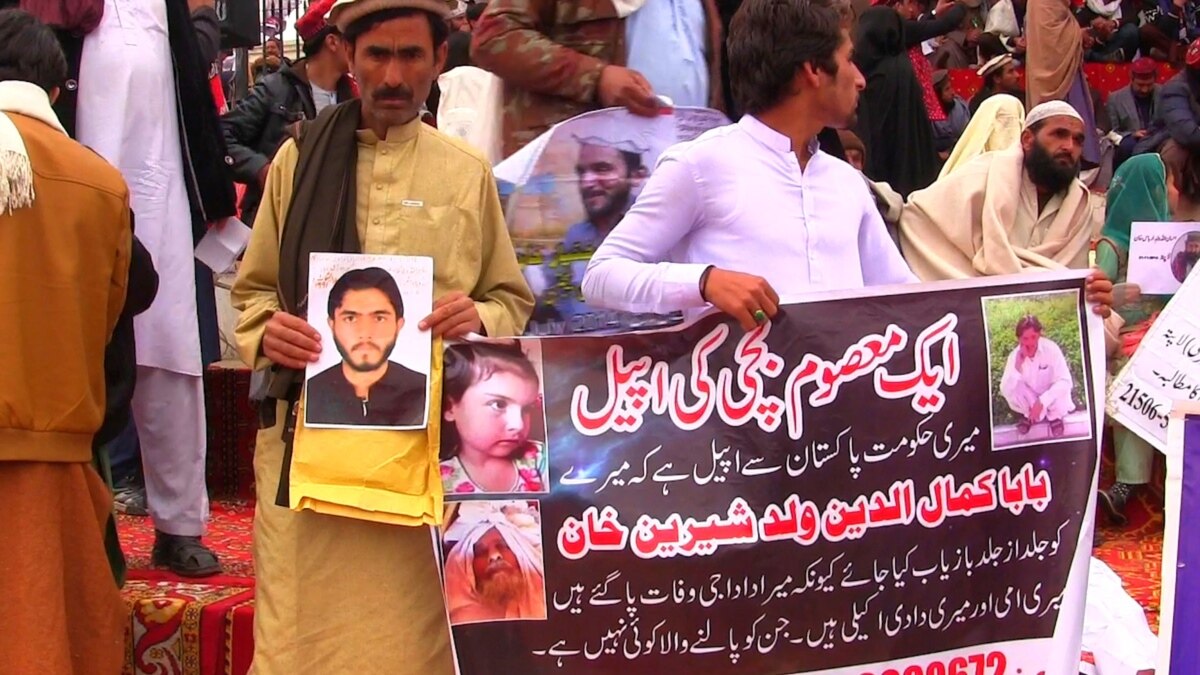 ایک معصوم بچی کی اپیل
میری حکومت پاکستان سے اپیل ہے کہ میرے
بابا کمال الدین ولد شیرین خان
کو جلد از جلد بازیاب کیا جائے کیونکہ میرا دادا جی وفات پا گئے ہیں
میری امی اور میری دادی اکیلی ہیں۔ جن کو پالنے والا کوئی نہیں ہے۔
لاپتہ
کا مطالبہ۔
21506-